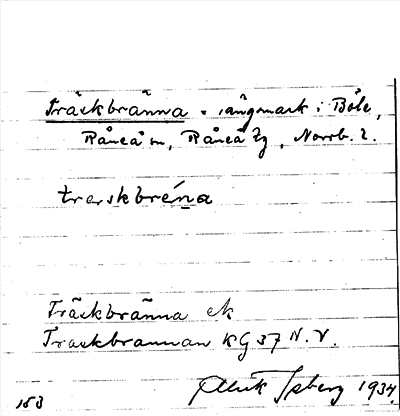 Träskbränna, ängsmark i Böle,
Råneå sn, Råneå tg, Norrb. l.
träskbréna
Träskbränna ek
Träskbrännan KG 37 N.V.
Isberg 1934.
153